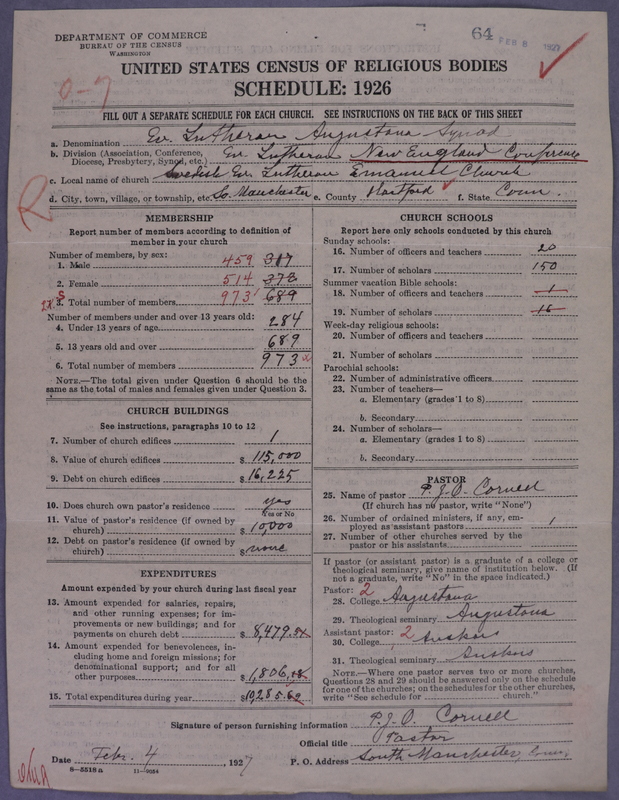 DEPARTMENT OF COMMERCE
BUREAU OF THE CENSUS
WASHINGTON
64 FEB 8 1927
UNITED STATES CENSUS OF RELIGIOUS BODIES
SCHEDULE: 1926
0-7
FILL OUT A SEPARATE SCHEDULE FOR EACH CHURCH. SEE INSTRUCTIONS ON THE BACK OF THIS SHEET
a. Denomination Ev. Lutheran Augustana Synod
b. Division (Association, Conference, Diocese, Presbytery, Synod, etc.) Ev. Lutheran New England Conference
c. Local name of church Swedish Ev. Lutheran Emanuel Church
d. City, town, village, or township, etc. So. Manchester e. County Hartford f. State Conn.
R
MEMBERSHIP
Report number of members according to definition of
member in your church
Number of members, by sex:
1. Male 459 317
2. Female 514 372
3. Total number of members 973 689
Number of members under and over 13 years old:
4. Under 13 years of age 284
5. 13 years old and over 689
6. Total number of members 973
NOTE.—The total given under Question 6 should be the
same as the total of males and females given under Question 3.
CHURCH BUILDINGS
See instructions, paragraphs 10 to 12
7. Number of church edifices 1
8. Value of church edifices $ 115,000
9. Debt on church edifices $ 16,225
10. Does church own pastor's residence? yes
Yes or No
11. Value of pastor's residence (if owned by
church) $ 10,000
12. Debt on pastor's residence (if owned by
church) $ none
EXPENDITURES
Amount expended by your church during last fiscal year
13. Amount expended for salaries, repairs,
and other running expenses; for im-
provements or new buildings; and for
payments on church debt $ 8,479.
14. Amount expended for benevolences, in-
cluding home and foreign missions; for
denominational support; and for all
other purposes $ 1,806.
15. Total expenditures during year $ 10,285.62
CHURCH SCHOOLS
Report here only schools conducted by this church
Sunday schools:
16. Number of officers and teachers 20
17. Number of scholars 150
Summer vacation Bible schools:
18. Number of officers and teachers 1
19. Number of scholars 16
Week-day religious schools:
20. Number of officers and teachers
21. Number of scholars
Parochial schools:
22. Number of administrative officers
23. Number of teachers—
a. Elementary (grades 1 to 8)
b. Secondary
24. Number of scholars—
a. Elementary (grades 1 to 8)
b. Secondary
PASTOR
25. Name of pastor P. J. O. Cornell
(If church has no pastor, write "None")
26. Number of ordained ministers, if any, em-
ployed as assistant pastors 1
27. Number of other churches served by the
pastor or his assistants
If pastor (or assistant pastor) is a graduate of a college or
theological seminary, give name of institution below. (If
not a graduate, write "No" in the space indicated.)
Pastor: 2
28. College Augustana
29. Theological seminary Augustana
Assistant pastor: 2
30. College
31. Theological seminary
NOTE.—Where one pastor serves two or more churches,
Questions 28 and 29 should be answered only on the schedule
for one of the churches; on the schedules for the other churches,
write "See schedule for church."
Signature of person furnishing information P. J. O. Cornell
Official title Pastor
Date Febr. 4, 1927 P. O. Address South Manchester, Conn.
8—5518 a 11—9054